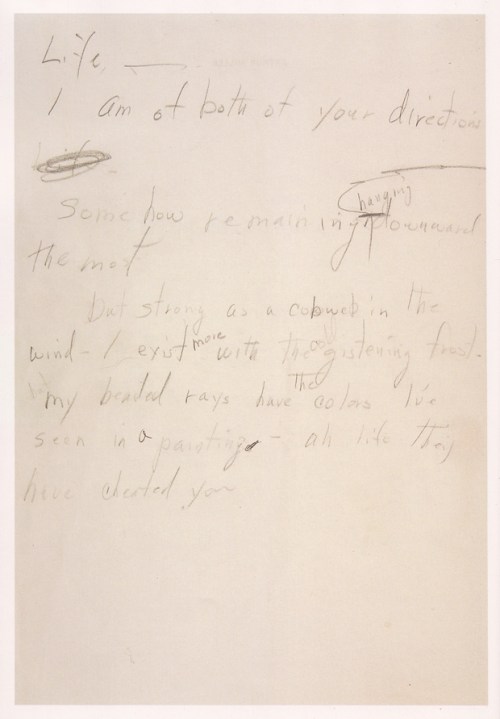 Life, —
I am of both of your directions
Life
hanging
Somehow remaining downward
the most
but strong as a cobweb in the
wind – I exist more with the cold glistening frost.
my beaded rays have the colors I've
seen in a painting – ah life they
have cheated you